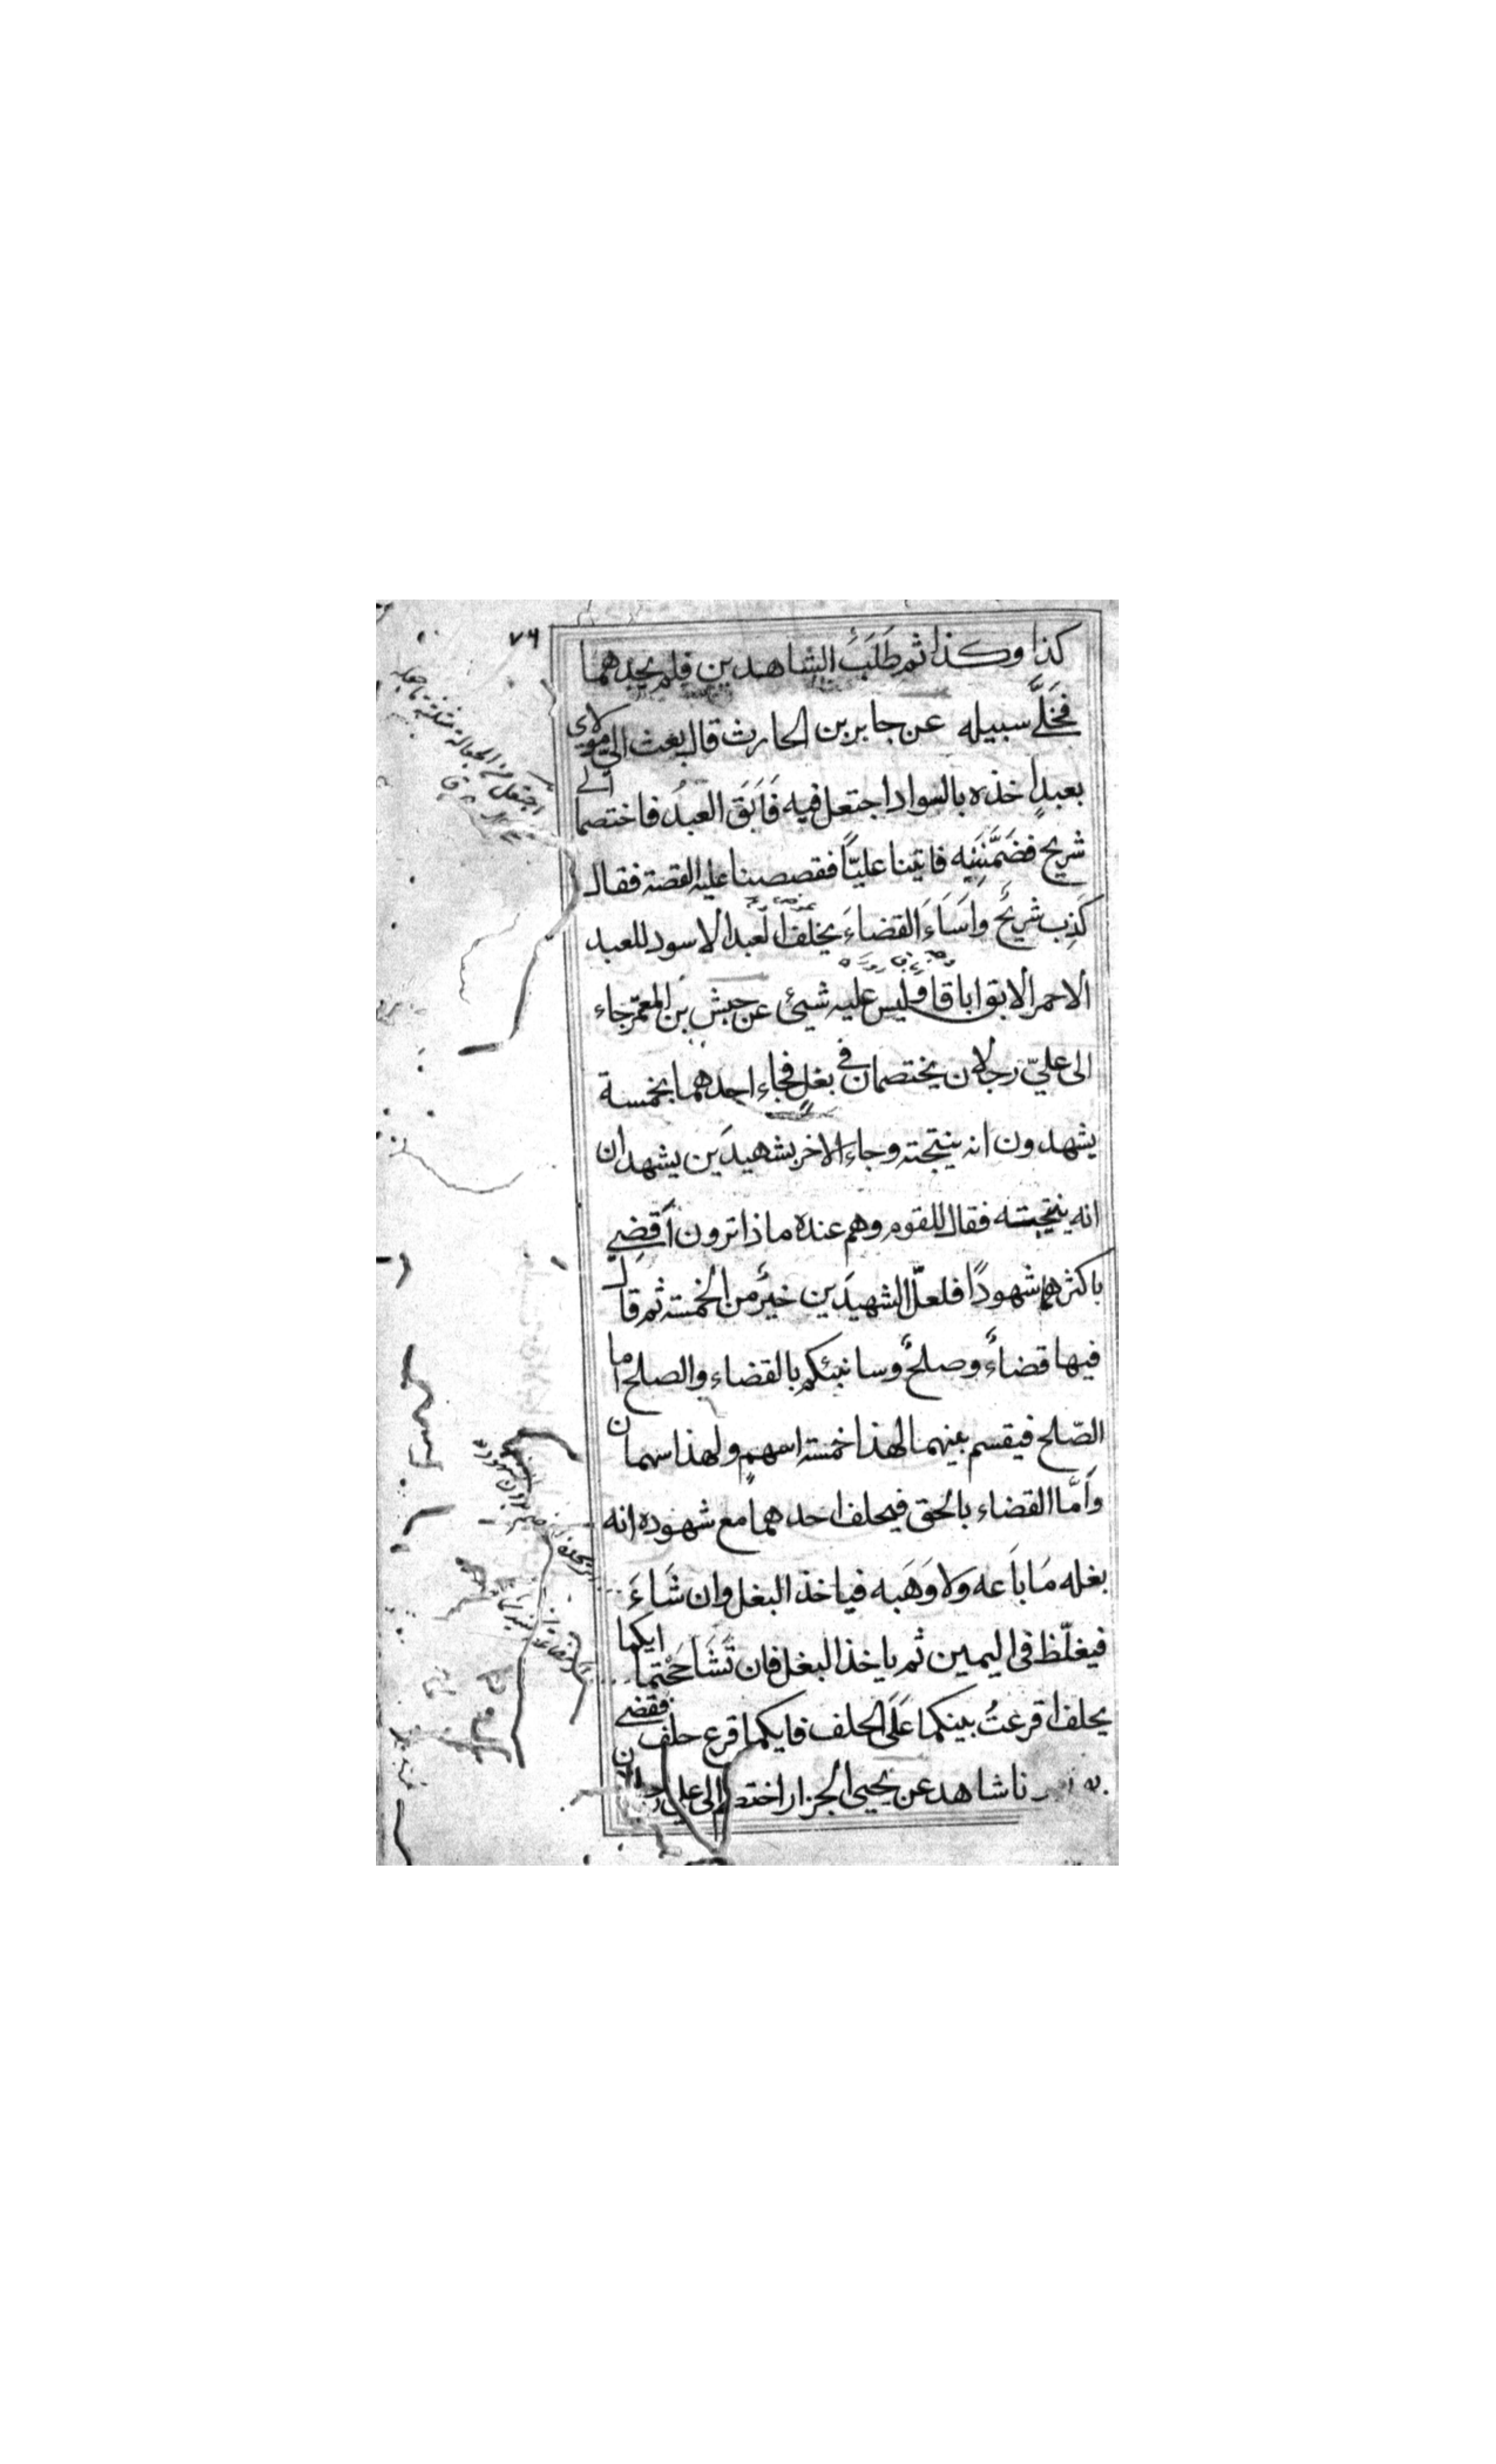 ٧٦
كذا وكذا ثم طَلَبَ الشاهدين فلم يجدهما
فَخَلَّى سبيله عن جابر بن الحارث قال بعث الى مولاى
بعبدٍ اخذه بالسواد اجتعل فيه فَاَبَقَ العبدُ فاختصما الى
شريح فضَمَّنَنِيْه فاتينا عليّاً فقصصنا عليه القصة فقال
كَذِبَ شريحٌ وَاَسَاءَ القضاءَ يحلف العبد الاسود للعبد
الاحمر الابق اباقا وليس عليه شيئ عن حبش بن المعتمر جاء
الى عليّ رجلان يختصمان فى بغلٍ فجاء احدهما بخمسة
يشهدون انه ينتجته وجاء الاخر بشهيدَين يشهدان
انه ينتجته فقال للقوم وهم عنده ماذا ترون أقضي
باكثرهما شهودًا فلعلّ الشهيدَين خيرٌ من الخمسة ثم قال
فيها قضاءٌ وصلحٌ وسانبئكم بالقضاء والصلح اما
الصّلح فيقسم بينهما لهذا خمسة اسهمٍ ولهذا سهمان
وأمّا القضاء بالحق فيحلف احدهما مع شهوده انه
بغله مَا باَعه ولا وَهَبه فياخذ البغل وان شَاءَ
فيغلّظ فى اليمين ثم ياخذ البغل فان تَشَاحَحْتما ايكما
يحلف اقرعتُ بينكما عَلَى الحلف فايكما قرع حلف فقضى
نا شاهد عن يحيى الجزار اختصم الى علي رجلان
اجتعل من الجعالة